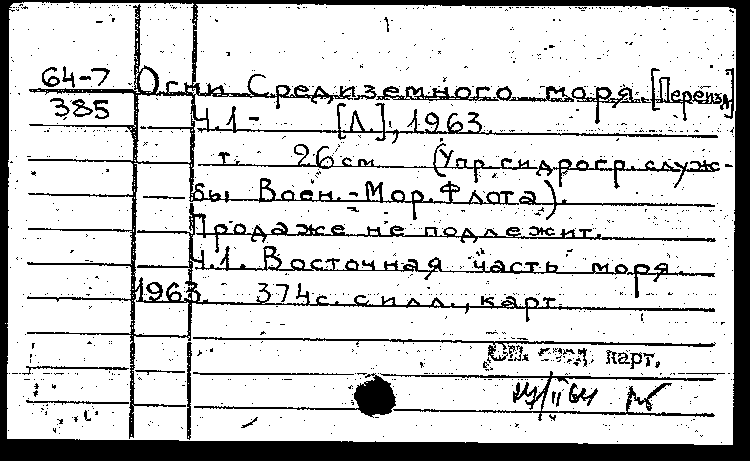 64-7 Огни Средиземного моря. [Переизд]
385 Ч.1- [Л.], 1963.
т. 26 см (Упр. гидрогр. служ-
бы Воен.-Мор. Флота).
Продаже не подлежит.
Ч.1. Восточная часть моря.
1963. 374 с. с илл., карт.
карт.